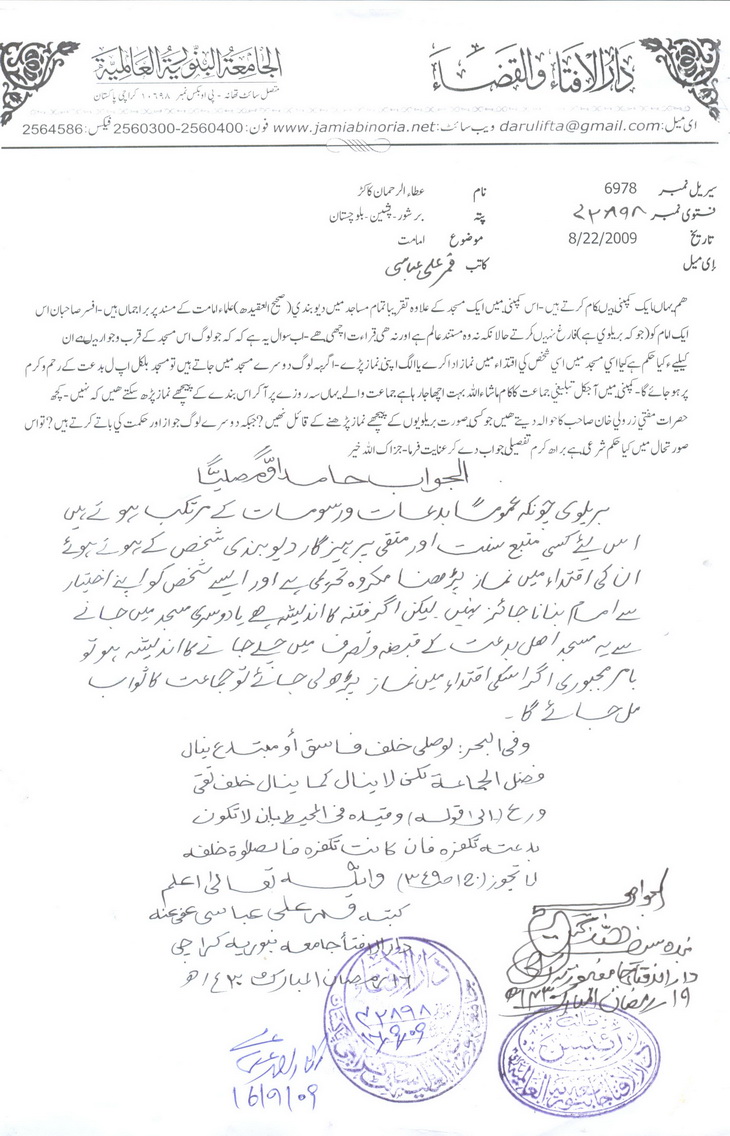 دارُالافتاء والقضاء
الجامعۃ البنوریۃ العالمیۃ
متصل سائٹ تھانہ - پی او بکس نمبر ۱۰۶۹۸ کراچی پاکستان
ای میل:darulifta@gmail.com ویب سائٹ:www.jamiabinoria.net فون:2560300-2560400 فیکس:2564586
سیریل نمبر 6978 نام عطاء الرحمان کاکڑ
فتوی نمبر ۷۲۸۹۸ پتہ برشور-پشین-بلوچستان
تاریخ 8/22/2009 موضوع امامت
ای میل کاتب قمر علی عباسی
ھم یہاں ایک کمپنی میں کام کرتے ہیں-اس کمپنی میں ایک مسجد کے علاوہ تقریبا تمام مساجد میں دیوبندی(صحیح العقیدھ)علماء امامت کے مسند پر براجماں ہیں-افسر صاحبان اس
ایک امام کو(جو کہ بریلوی ہے)فارغ نہیں کرتے حالانکہ نہ وہ مستند عالم ہے اور نہ ھی قراءت اچھی ھے-اب سوال یہ ہے کہ کہ جو لوگ اس مسجد کے قرب وجوار میں ہے ان
کیلیے کیا حکم ہے کیا اسی مسجد میں اسی شخص کی اقتداء میں نماز ادا کرے یا الگ اپنی نماز پڑے-اگر یہ لوگ دوسرے مسجد میں جاتے ہیں تو مسجد بلکل اہل بدعت کے رحم وکرم
پر ہو جائے گا-کمپنی میں آجکل تبلیغی جماعت کا کام ماشاء اللہ بہت اچھا جا رہا ہے جماعت والے یہاں سہ روزے پر آکر اس بندے کے پیچھے نماز پڑھ سکتے ھیں کہ نہیں-کچھ
حضرات مفتی زر ولی خان صاحب کا حوالہ دیتے ھیں جو کسی صورت بریلویوں کے پیچھے نماز پڑھنے کے قائل نھیں?جبکہ دوسرے لوگ جواز اور حکمت کی باتے کرتے ہیں?تو اس
صورتحال میں کیا حکم شرعی ہے براھ کرم تفصیلی جواب دے کر عنایت فرما-جزاک اللہ خیر
الجواب حامداً ومصلیاً
بریلوی چونکہ عموماً بدعات ورسومات کے مرتکب ہوتے ہیں
اس لیئے کسی متبع سنت اور متقی پرہیزگار دیوبندی شخص کے ہوتے ہوئے
ان کی اقتداء میں نماز پڑھنا مکروہ تحریمی ہے اور ایسے شخص کو اپنے اختیار
سے امام بنانا جائز نہیں لیکن اگر فتنہ کا اندیشہ ہے یا دوسری مسجد میں جانے
سے یہ مسجد اھل بدعت کے قبضہ وتصرف میں چلے جانے کا اندیشہ ہو تو
بامر مجبوری اگر اسکی اقتداء میں نماز پڑھ لی جائے تو جماعت کا ثواب
مل جائے گا۔
وفی البحر: لو صلی خلف فاسق أو مبتدع ینال
فضل الجماعۃ لکن لا ینال کما ینال خلف تقی
ورع (الی قولہ) وقیدہ فی المحیط بان لا تکون
بدعتہ تکفرہ فان کانت تکفرہ فالصلوۃ خلفہ
لا تجوز (ج۱ ص۳۴۹) واللہ تعالی اعلم
کتبہ قمر علی عباسی عفی عنہ
دار الافتاء جامعہ بنوریہ کراچی
۱۶ رمضان المبارک ۱۴۳۰ھ
دار الافتاء
۷۲۸۹۸
۱۶/۹/۰۹
16/9/09
دار الافتاء جامعہ بنوریہ
۱۹ رمضان المبارک ۱۴۳۰ھ
رئیس
دار الافتاء جامعہ بنوریہ العالمیہ